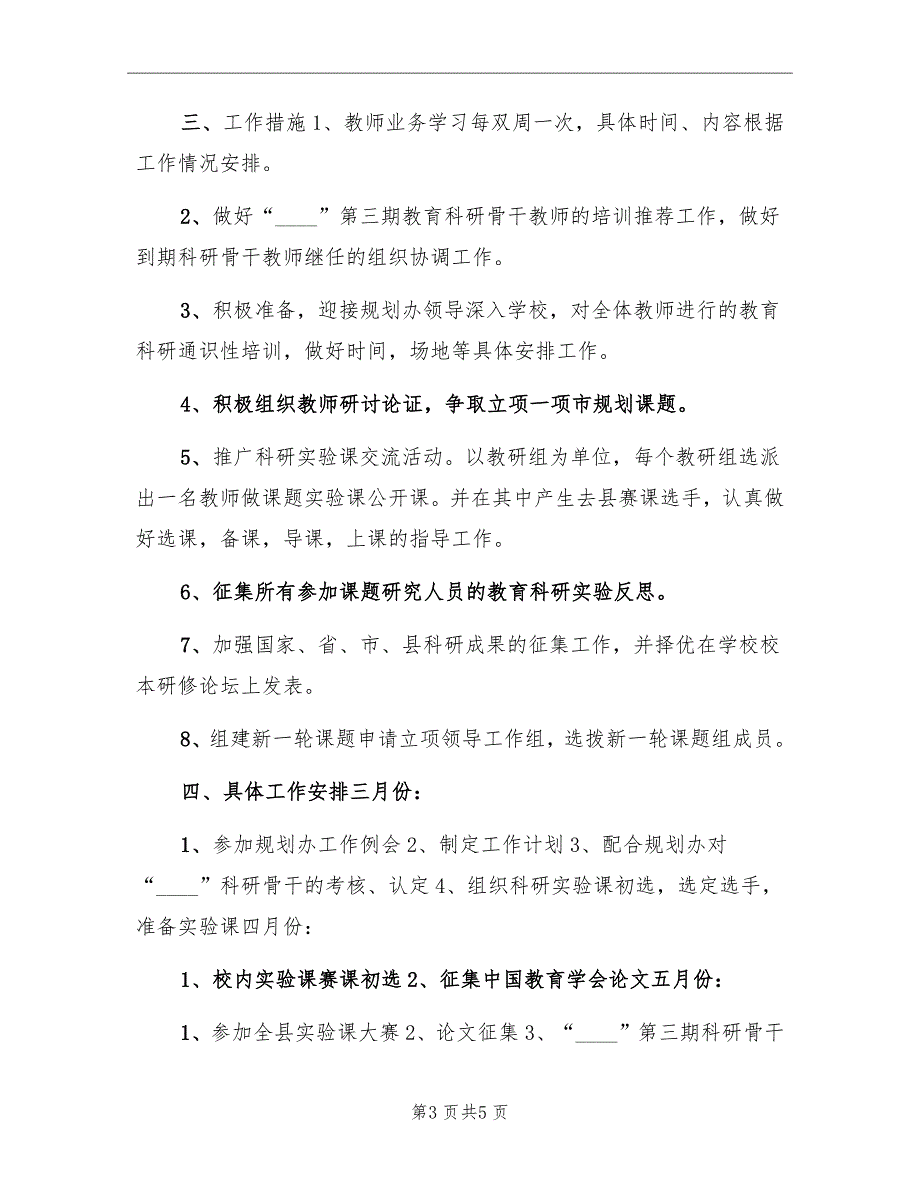 三、工作措施1、教师业务学习每双周一次，具体时间、内容根据
工作情况安排。
2、做好“____”第三期教育科研骨干教师的培训推荐工作，做好
到期科研骨干教师继任的组织协调工作。
3、积极准备，迎接规划办领导深入学校，对全体教师进行的教育
科研通识性培训，做好时间，场地等具体安排工作。
4、积极组织教师研讨论证，争取立项一项市规划课题。
5、推广科研实验课交流活动。以教研组为单位，每个教研组选派
出一名教师做课题实验课公开课。并在其中产生去县赛课选手，认真做
好选课，备课，导课，上课的指导工作。
6、征集所有参加课题研究人员的教育科研实验反思。
7、加强国家、省、市、县科研成果的征集工作，并择优在学校校
本研修论坛上发表。
8、组建新一轮课题申请立项领导工作组，选拨新一轮课题组成员。
四、具体工作安排三月份：
1、参加规划办工作例会2、制定工作计划3、配合规划办对
“____”科研骨干的考核、认定4、组织科研实验课初选，选定选手，
准备实验课四月份：
1、校内实验课赛课初选2、征集中国教育学会论文五月份：
1、参加全县实验课大赛2、论文征集3、“____”第三期科研骨干
第3 页共5 页